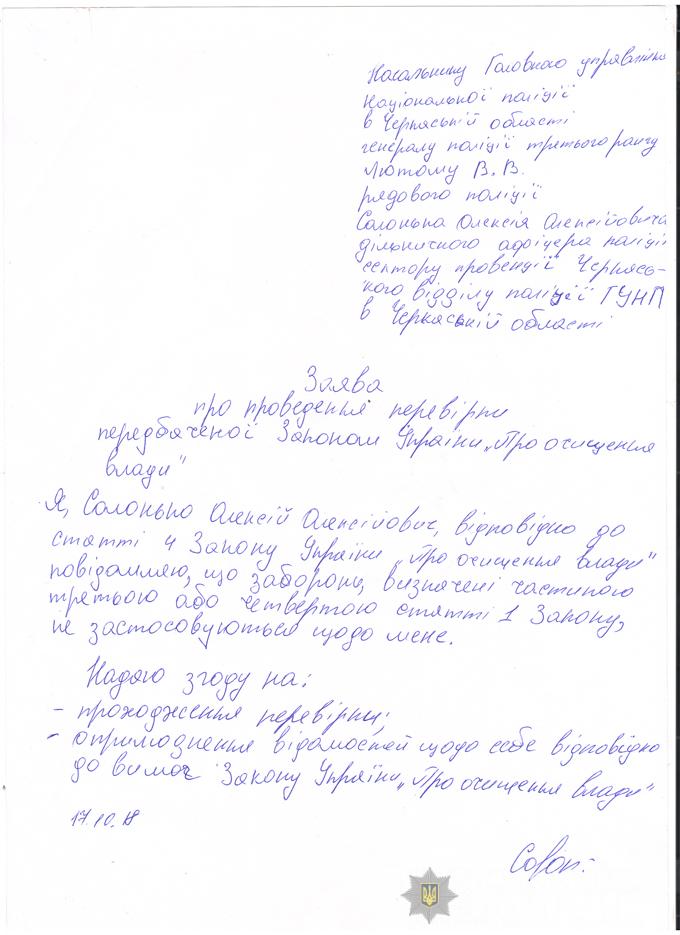 Начальнику Головного управління
Національної поліції
в Черкаській області
генералу поліції третього рангу
Лютому В.В.
рядового поліції
Солонька Олексія Олексійовича
дільничного офіцера поліції
сектору превенції Черкась-
кого відділу поліції ГУНП
в Черкаській області
Заява
про проведення перевірки
передбаченої Законом України „Про очищення
влади"
Я, Солонько Олексій Олексійович, відповідно до
статті 4 Закону України „Про очищення влади"
повідомляю, що заборони, визначені частиною
третьою або четвертою статті 1 Закону,
не застосовуються щодо мене.
Надаю згоду на:
- проходження перевірки;
- оприлюднення відомостей щодо себе відповідно
до вимог Закону України „Про очищення влади"
17.10.18